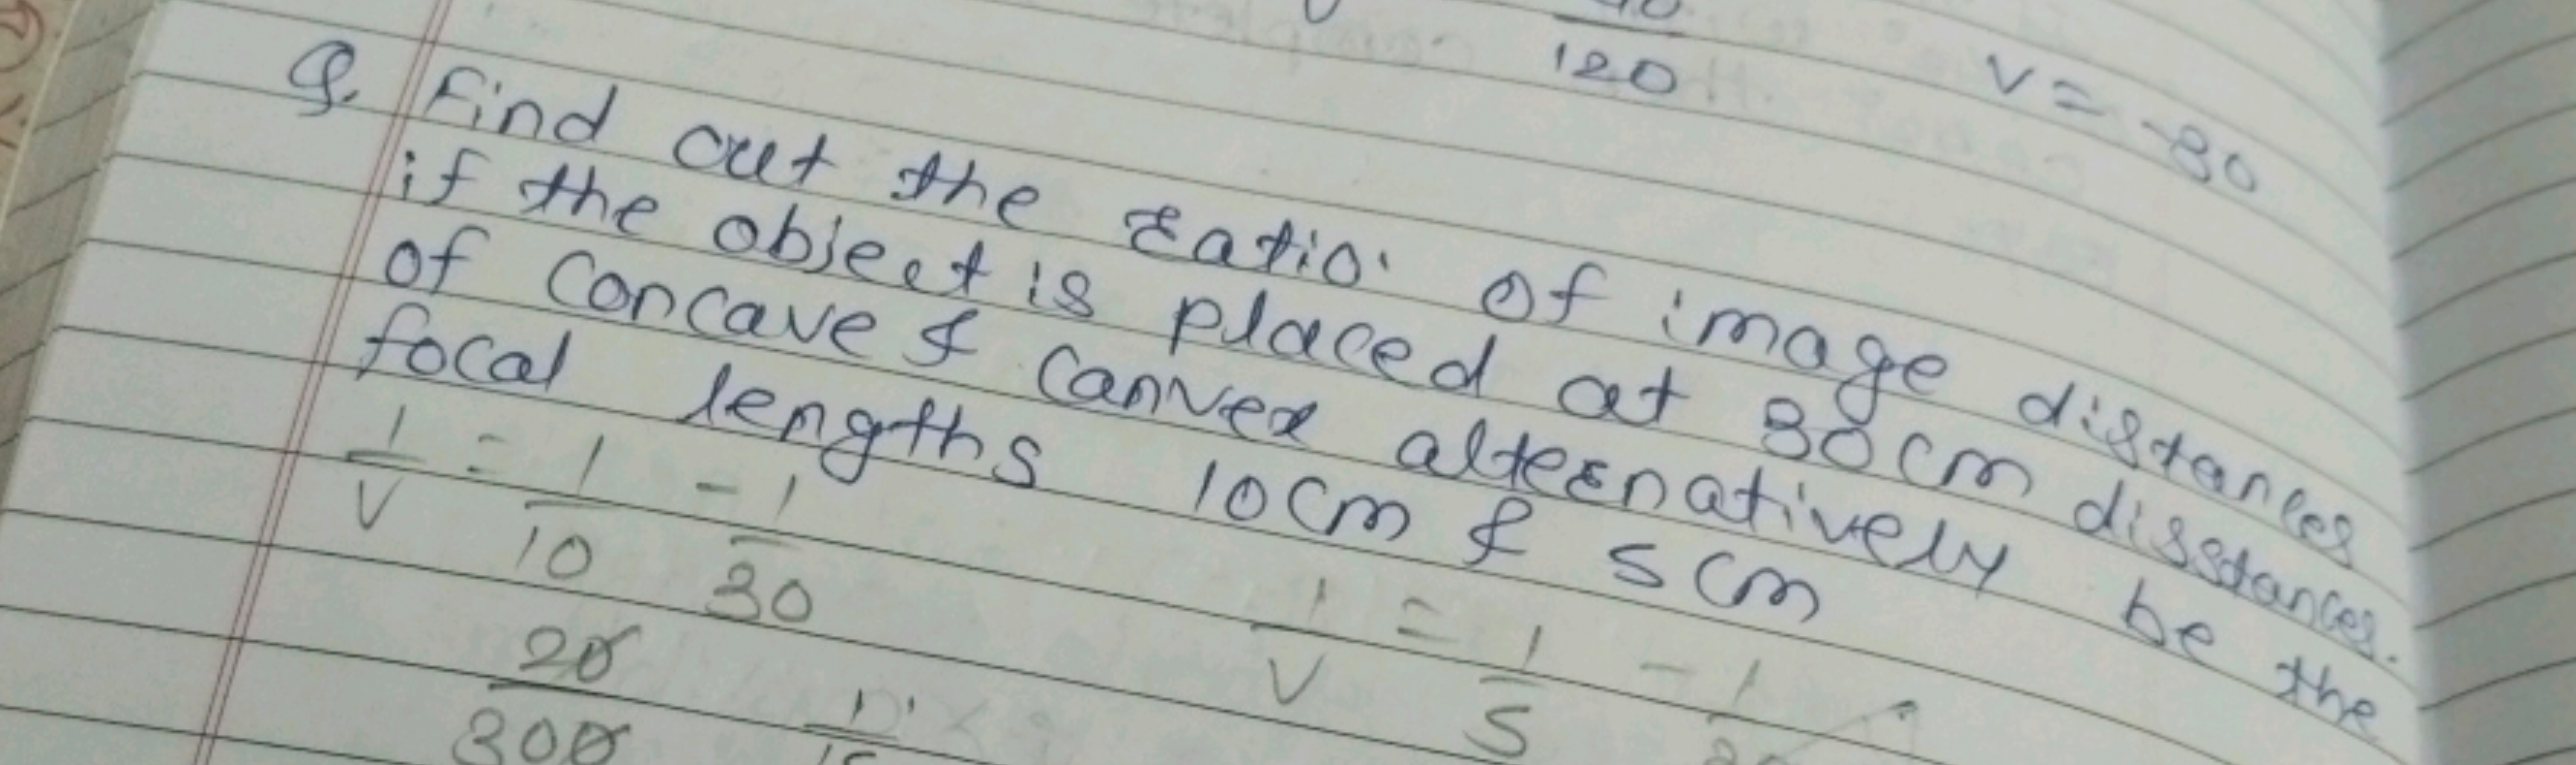 120 v = -30
Q. Find out the ratio of image distances
if the object is placed at 30cm disstances.
of concave & canvex alternatively be the
focal lengths 10cm & 5cm
1/v = 1/10 - 1/30 1/v = 1/5 - 1
20/300